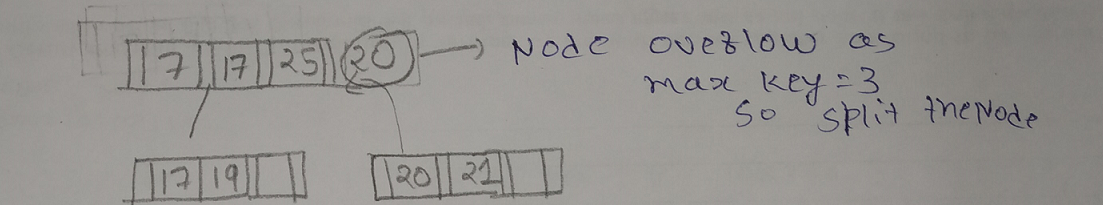 7 17 25 20 → Node overflow as
max key=3
So split the Node
17 19
20 21